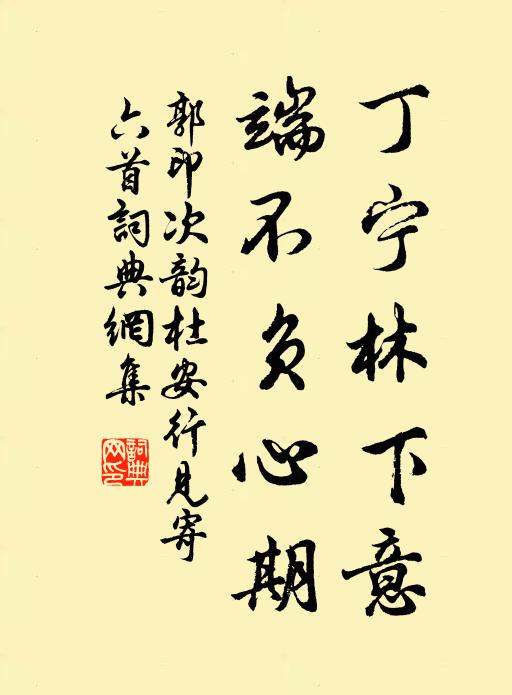 丁宁林下意
端不负心期
郭印次韵杜安行见寄
六首詞典網集
詞典
网印